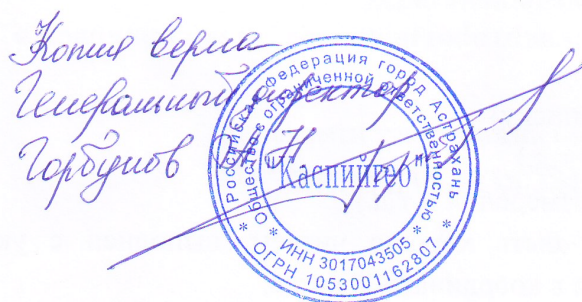 Копия верна
Генеральный директор
Горбунов
Российская Федерация город Астрахань
Общество с ограниченной ответственностью
"Каспийгео"
* ИНН 3017043505 *
* ОГРН 1053001162807 *